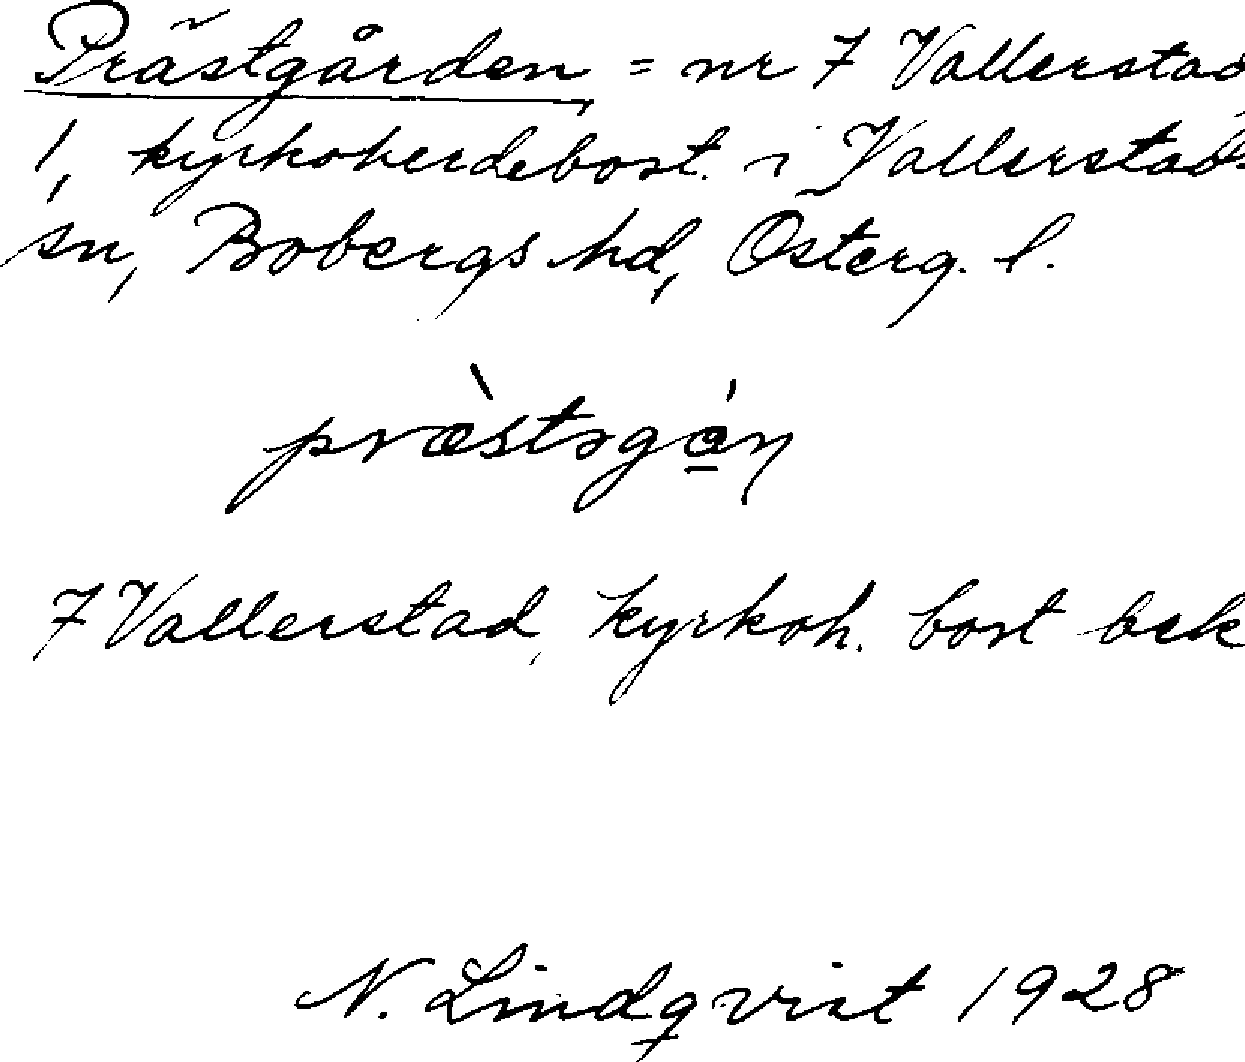 Prästgården = nr 7 Vallerstad
1, kyrkoherdebost. i Vallerstads
sn, Bobergs hd, Österg. l.
præ̀stəgə̠́n
7 Vallerstad, kyrkoh. bost bek
N. Lindqvist 1928